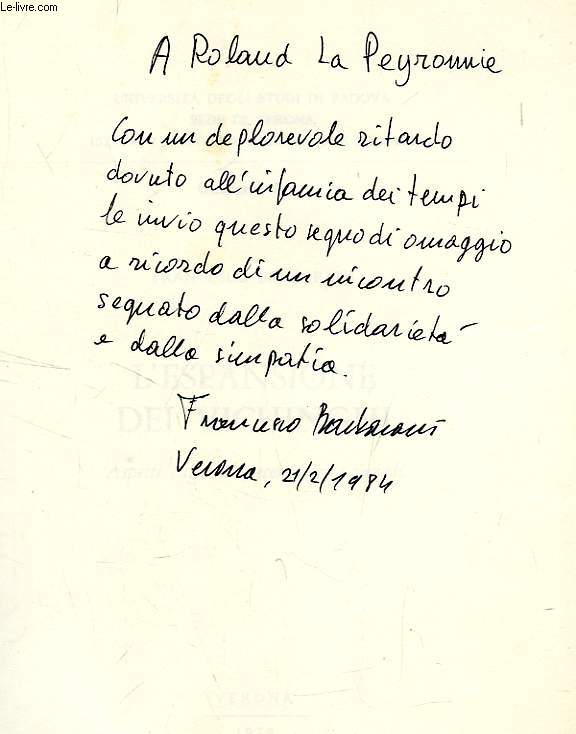 © Le-livre.com
A Roland La Peyronnie
UNIVERSITÀ DEGLI STUDI DI PADOVA
Con un deplorevole ritardo
dovuto all'infamia dei tempi
le invio questo segno di omaggio
a ricordo di un incontro
segnato dalla solidarietà
e dalla simpatia.
L'ESPANSIONE
DEI
Francesco
Verona, 21/2/1984
VERONA